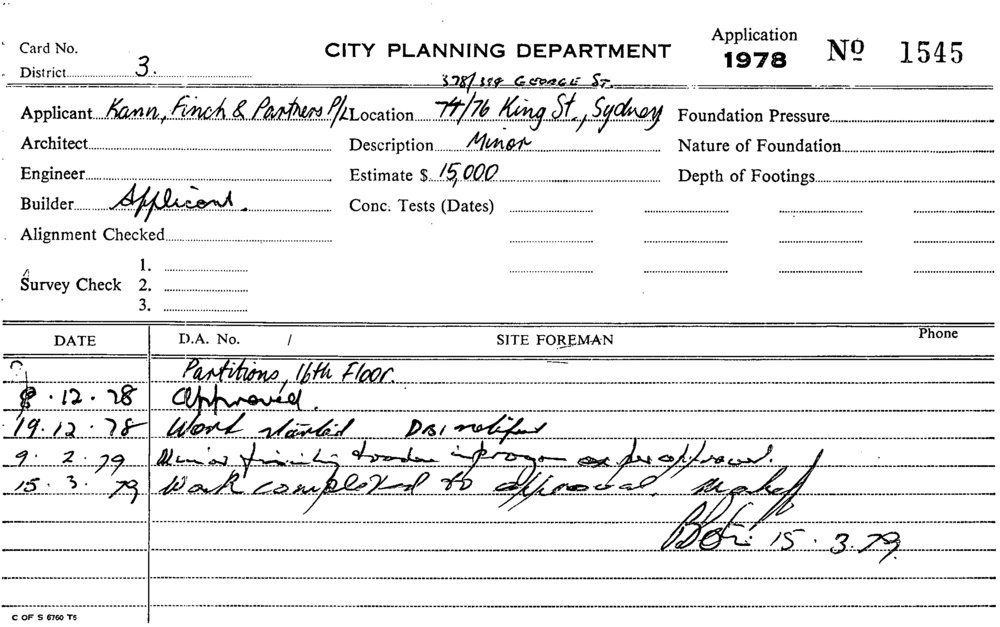 Card No. CITY PLANNING DEPARTMENT Application
1978 No 1545
District 3.
378/394 GEORGE ST.
Applicant Kann, Finch & Partners P/L Location 74/76 King St., Sydney Foundation Pressure
Architect Description Minor Nature of Foundation
Engineer Estimate $ 15,000 Depth of Footings
Builder Applicant. Conc. Tests (Dates)
Alignment Checked
1.
Survey Check 2.
3.
DATE D.A. No. / SITE FOREMAN Phone
Partitions, 16th Floor.
8.12.78 Approved.
19.12.78 Work started DBI notified
9.2.79 Minor finishing trades in progress as per approval.
15.3.79 Work completed to approval.
15.3.79
C OF S 6760 T5